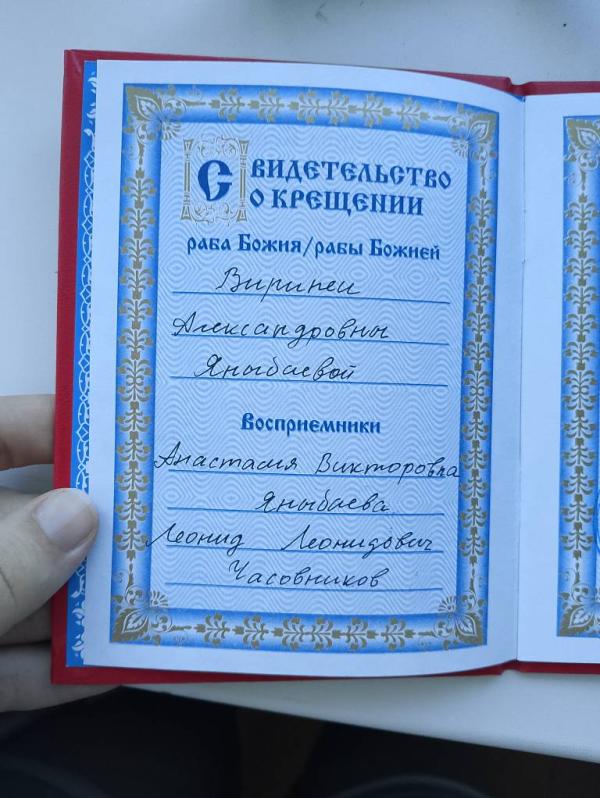 Свидетельство
о крещении
раба Божия/рабы Божией
Виринеи
Александровны
Яныбаевой
Восприемники
Анастасия Викторовна
Яныбаева
Леонид Леонидович
Часовников